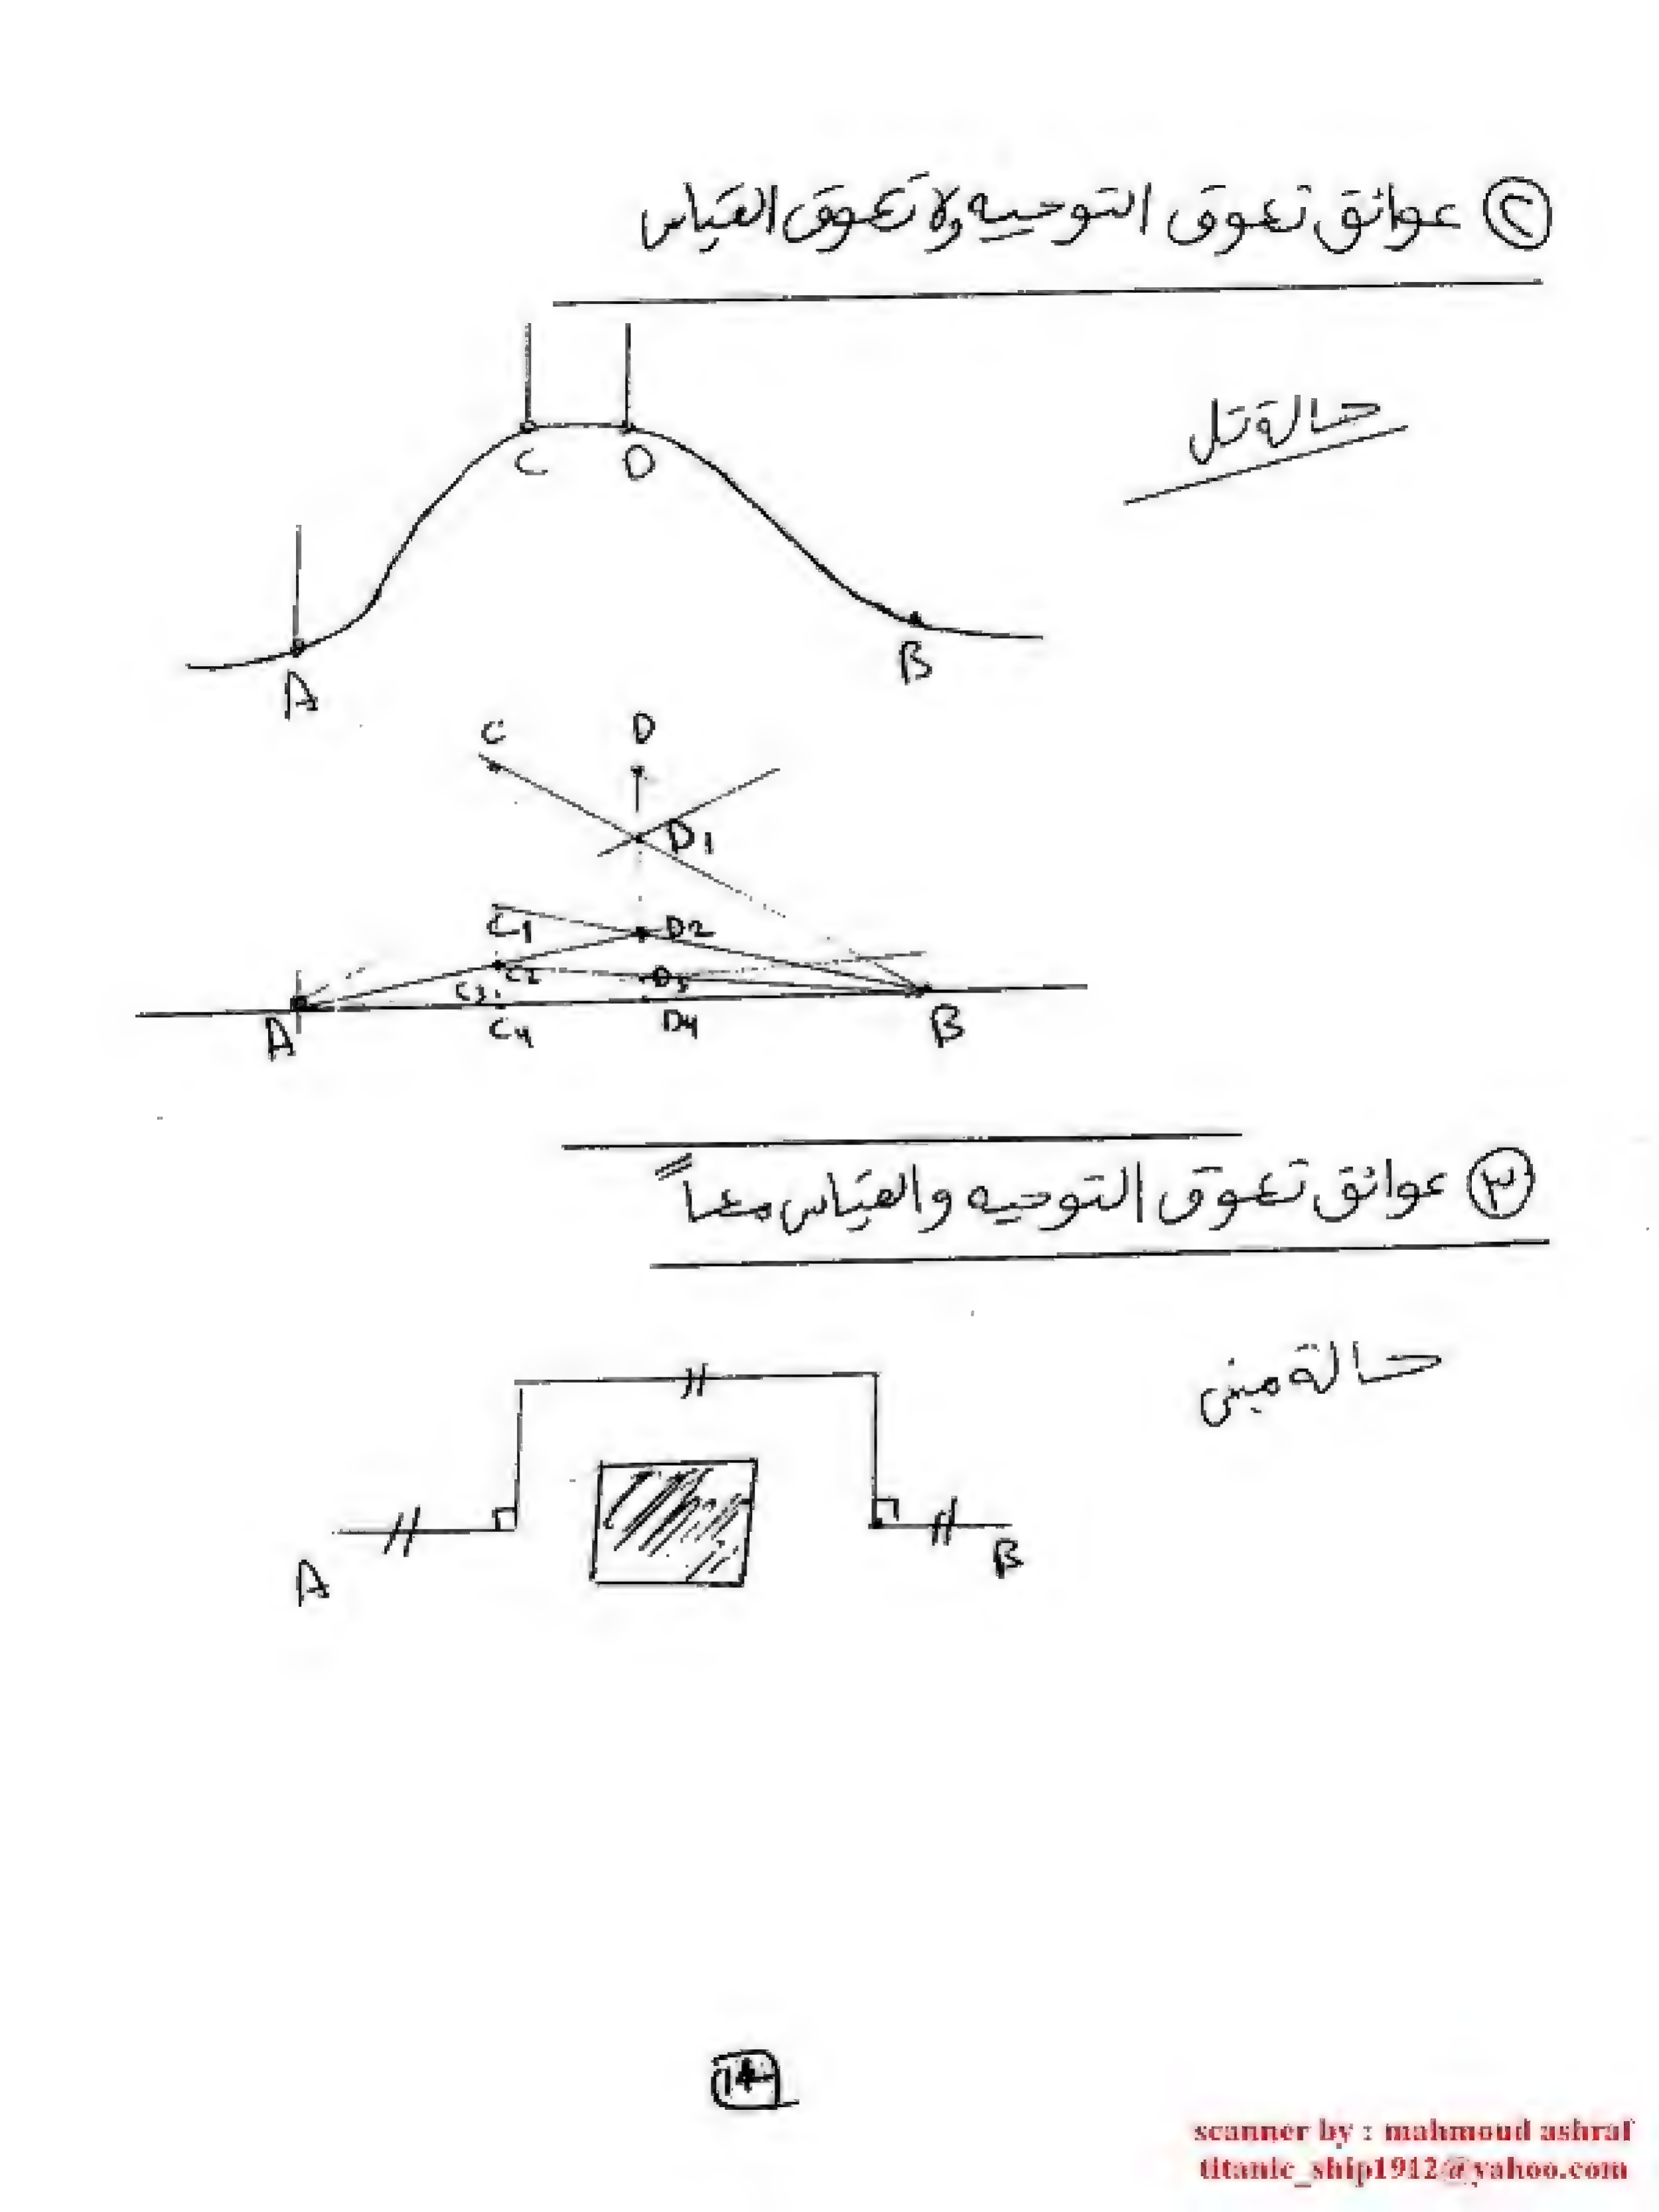 ٢ عوائق تعوق التوجيه ولا تعوق القياس
حالة تل
C D
A B
C D
D1
C1 D2
C2 D3
C3
A C4 D4 B
٣ عوائق تعوق التوجيه والقياس معاً
حالة مبنى
A B
scanner by : mahmoud ashraf
titanic_ship1912@yahoo.com